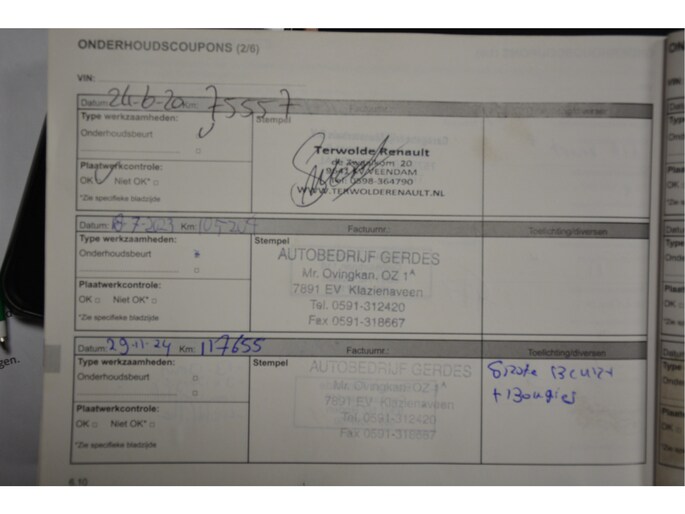 ONDERHOUDSCOUPONS (2/6)
VIN:
Datum: 24-6-20 Km: 75557 Factuurnr.:
Type werkzaamheden: Stempel
Onderhoudsbeurt
Terwolde Renault
20
VEENDAM
Tel. 0598-364790
WWW.TERWOLDERENAULT.NL
Plaatwerkcontrole:
OK Niet OK*
*Zie specifieke bladzijde
Datum: 18-7-2023 Km: Factuurnr.: Toelichting/diversen
Type werkzaamheden: Stempel
Onderhoudsbeurt
AUTOBEDRIJF GERDES
Mr. Ovingkan, OZ 1A
7891 EV Klazienaveen
Tel. 0591-312420
Fax 0591-318667
Plaatwerkcontrole:
OK Niet OK*
*Zie specifieke bladzijde
Datum: 29-11-24 Km: 117655 Factuurnr.: Toelichting/diversen
Type werkzaamheden: Stempel
Onderhoudsbeurt
AUTOBEDRIJF GERDES
Mr. Ovingkan, OZ 1A
7891 EV Klazienaveen
Tel. 0591-312420
Fax 0591-318667
Grote Beurt
+ Bougies
Plaatwerkcontrole:
OK Niet OK*
*Zie specifieke bladzijde
6.10
gen.